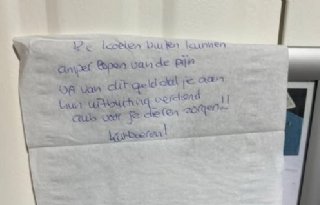 De koeien buiten kunnen
amper lopen van de pijn
van dit geld dat je aan
hun uitbuiting verdiend
aub voor je dieren zorgen!!